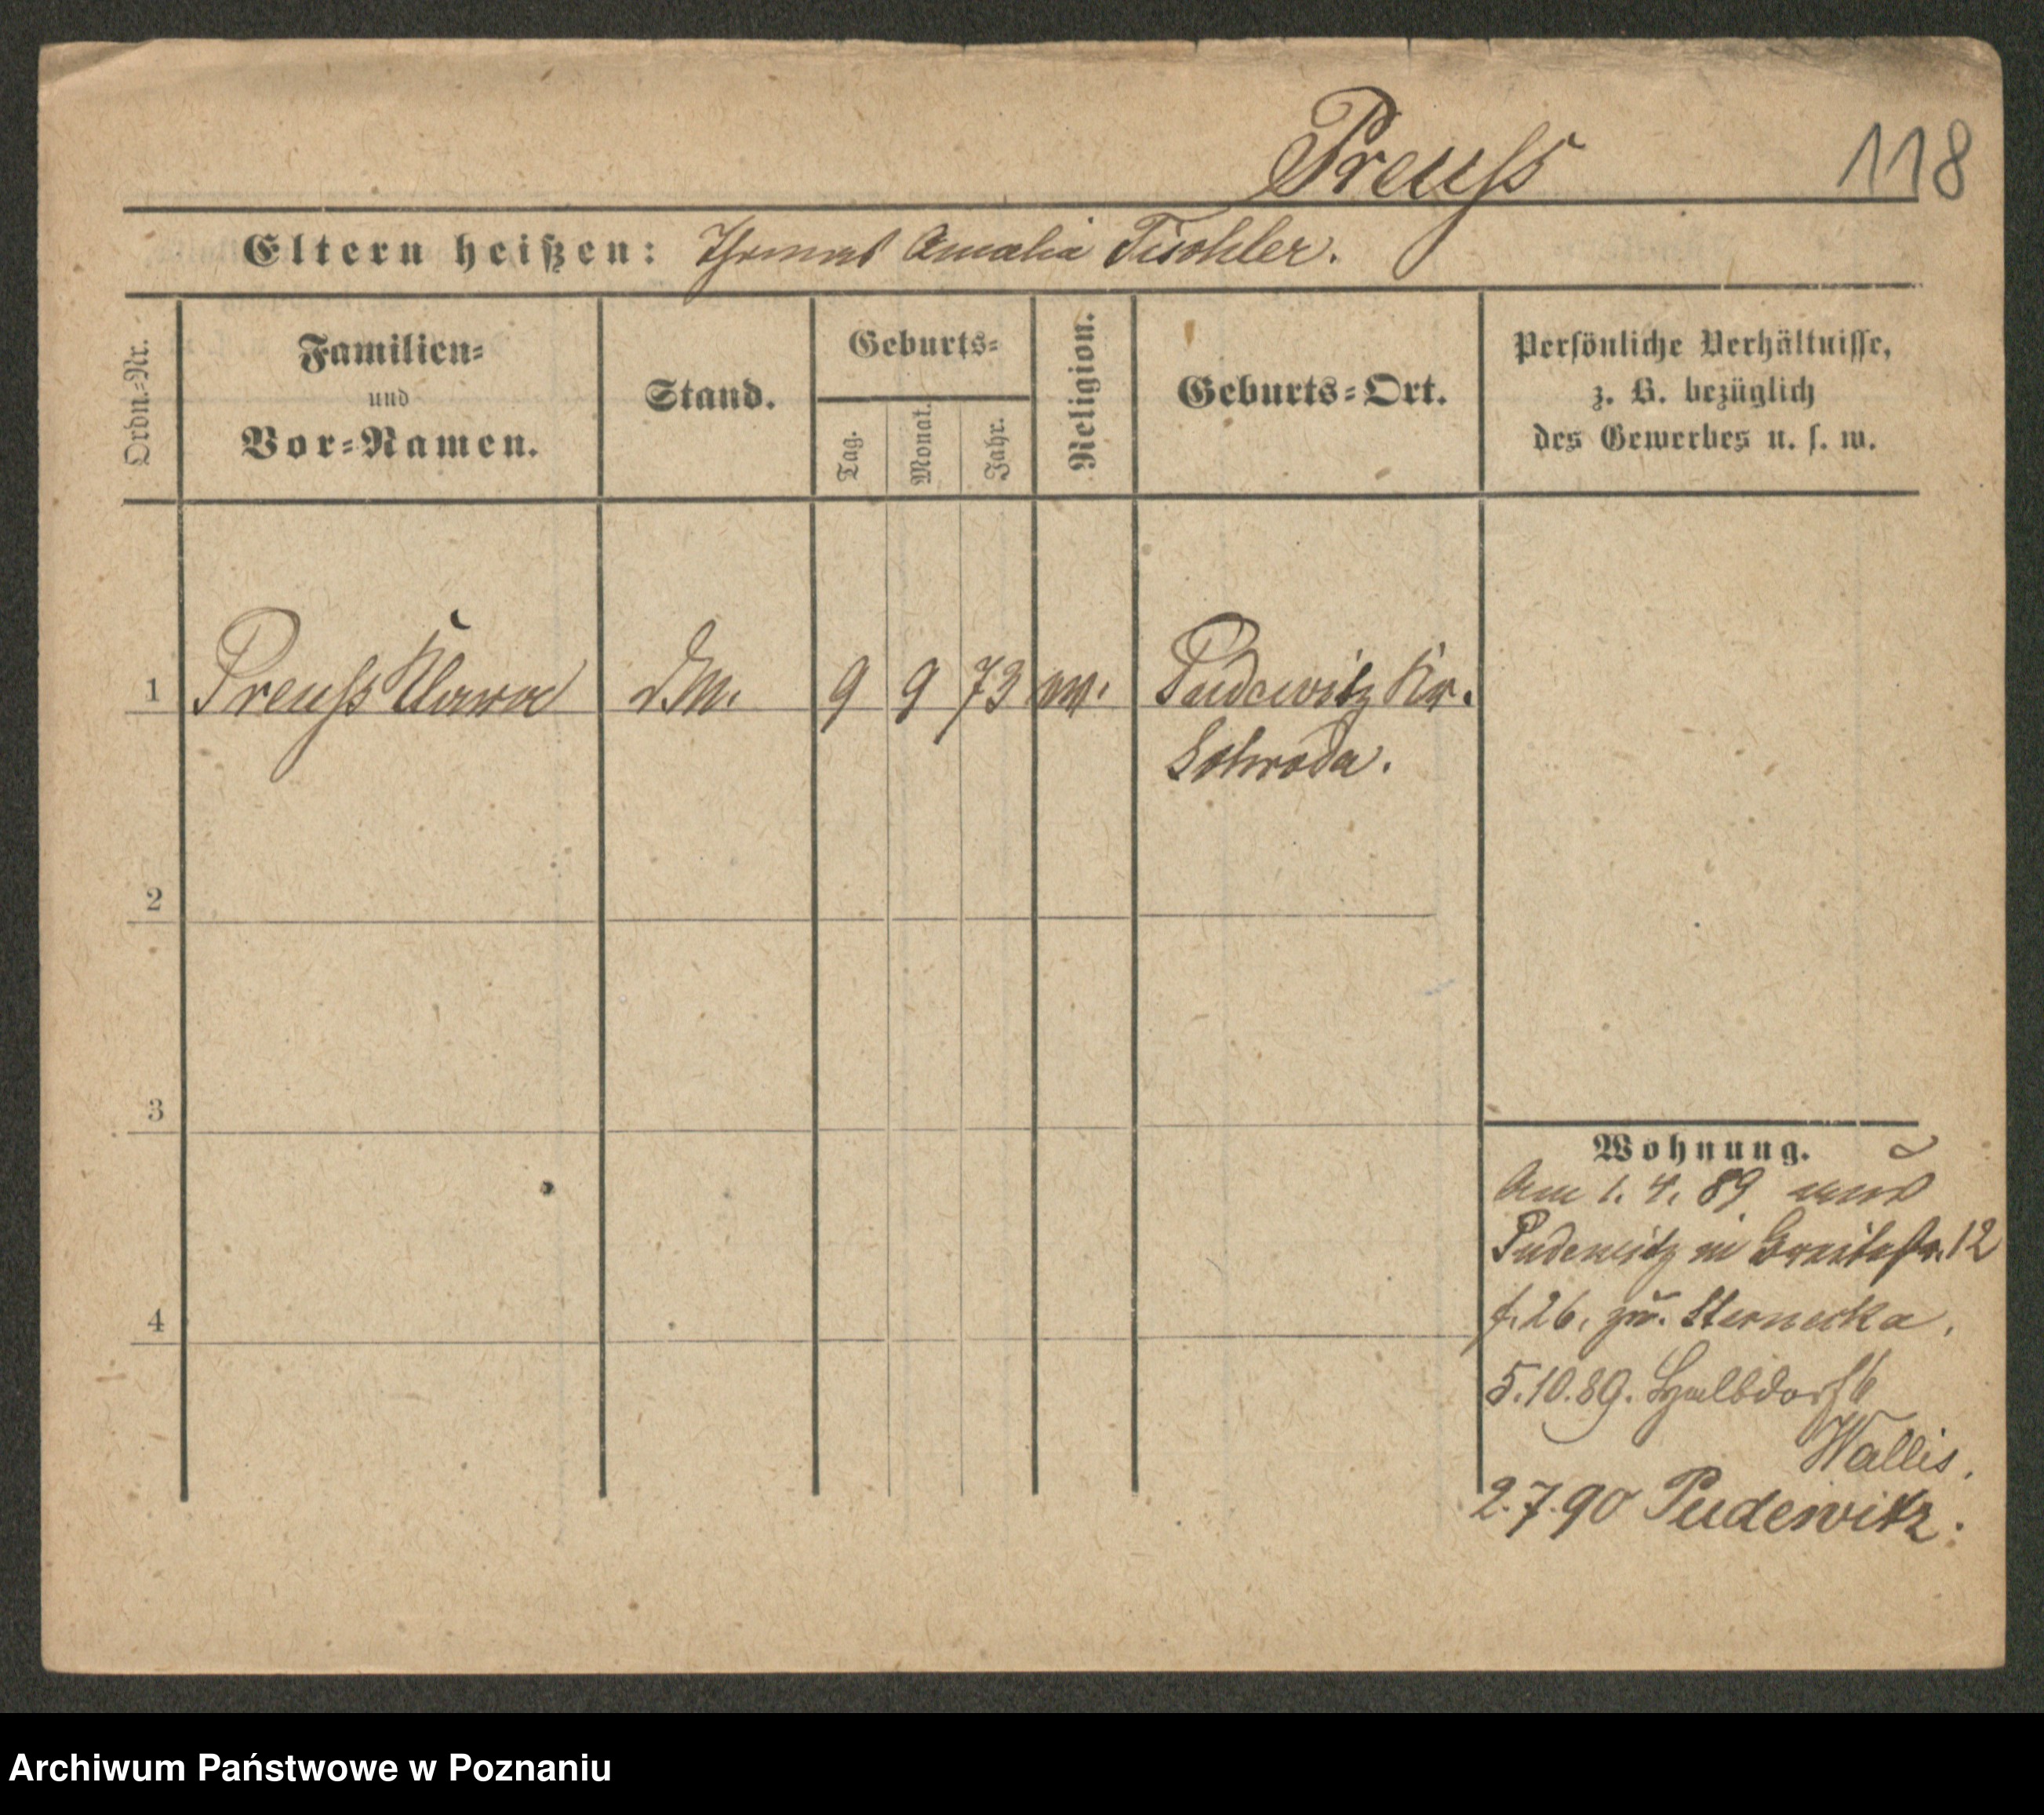 Preuss 118
Eltern heißen: Thomas Amalia Tischler.
Ordn.=Nr.
Familien=
und
Vor=Namen.
Stand.
Geburts=
Tag.
Monat.
Jahr.
Religion.
Geburts=Ort.
Persönliche Verhältnisse,
z. B. bezüglich
des Gewerbes u. s. w.
1 Preuss Klara DM. 9 9 73 Pudewitz Kr.
Schroda.
2
3
4
Wohnung.
Am 1. 4. 89 aus
Pudewitz in Breitestr. 12
f. 26. zu. Sternecka.
5.10.89. Halbdorfs
Wallis.
2.7.90 Pudewitz.
Archiwum Państwowe w Poznaniu